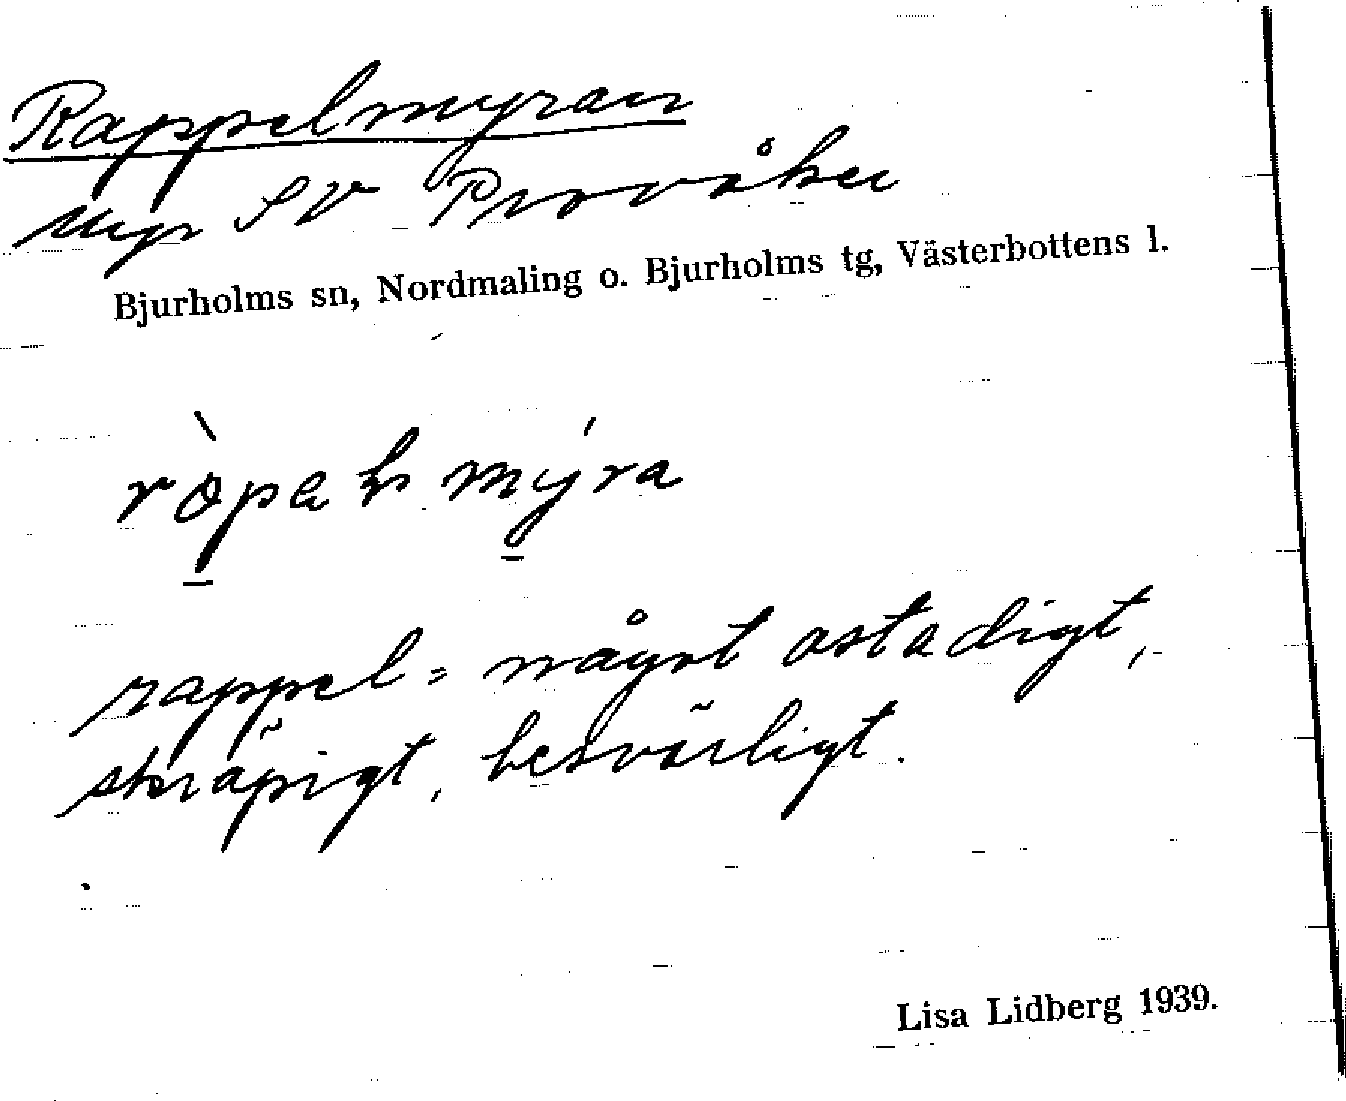 Rappelmyran
Myr SV Provåker
Bjurholms sn, Nordmaling o. Bjurholms tg, Västerbottens l.
mýra
rappel = något ostadigt,
skräpigt, besvärligt.
Lisa Lidberg 1939.